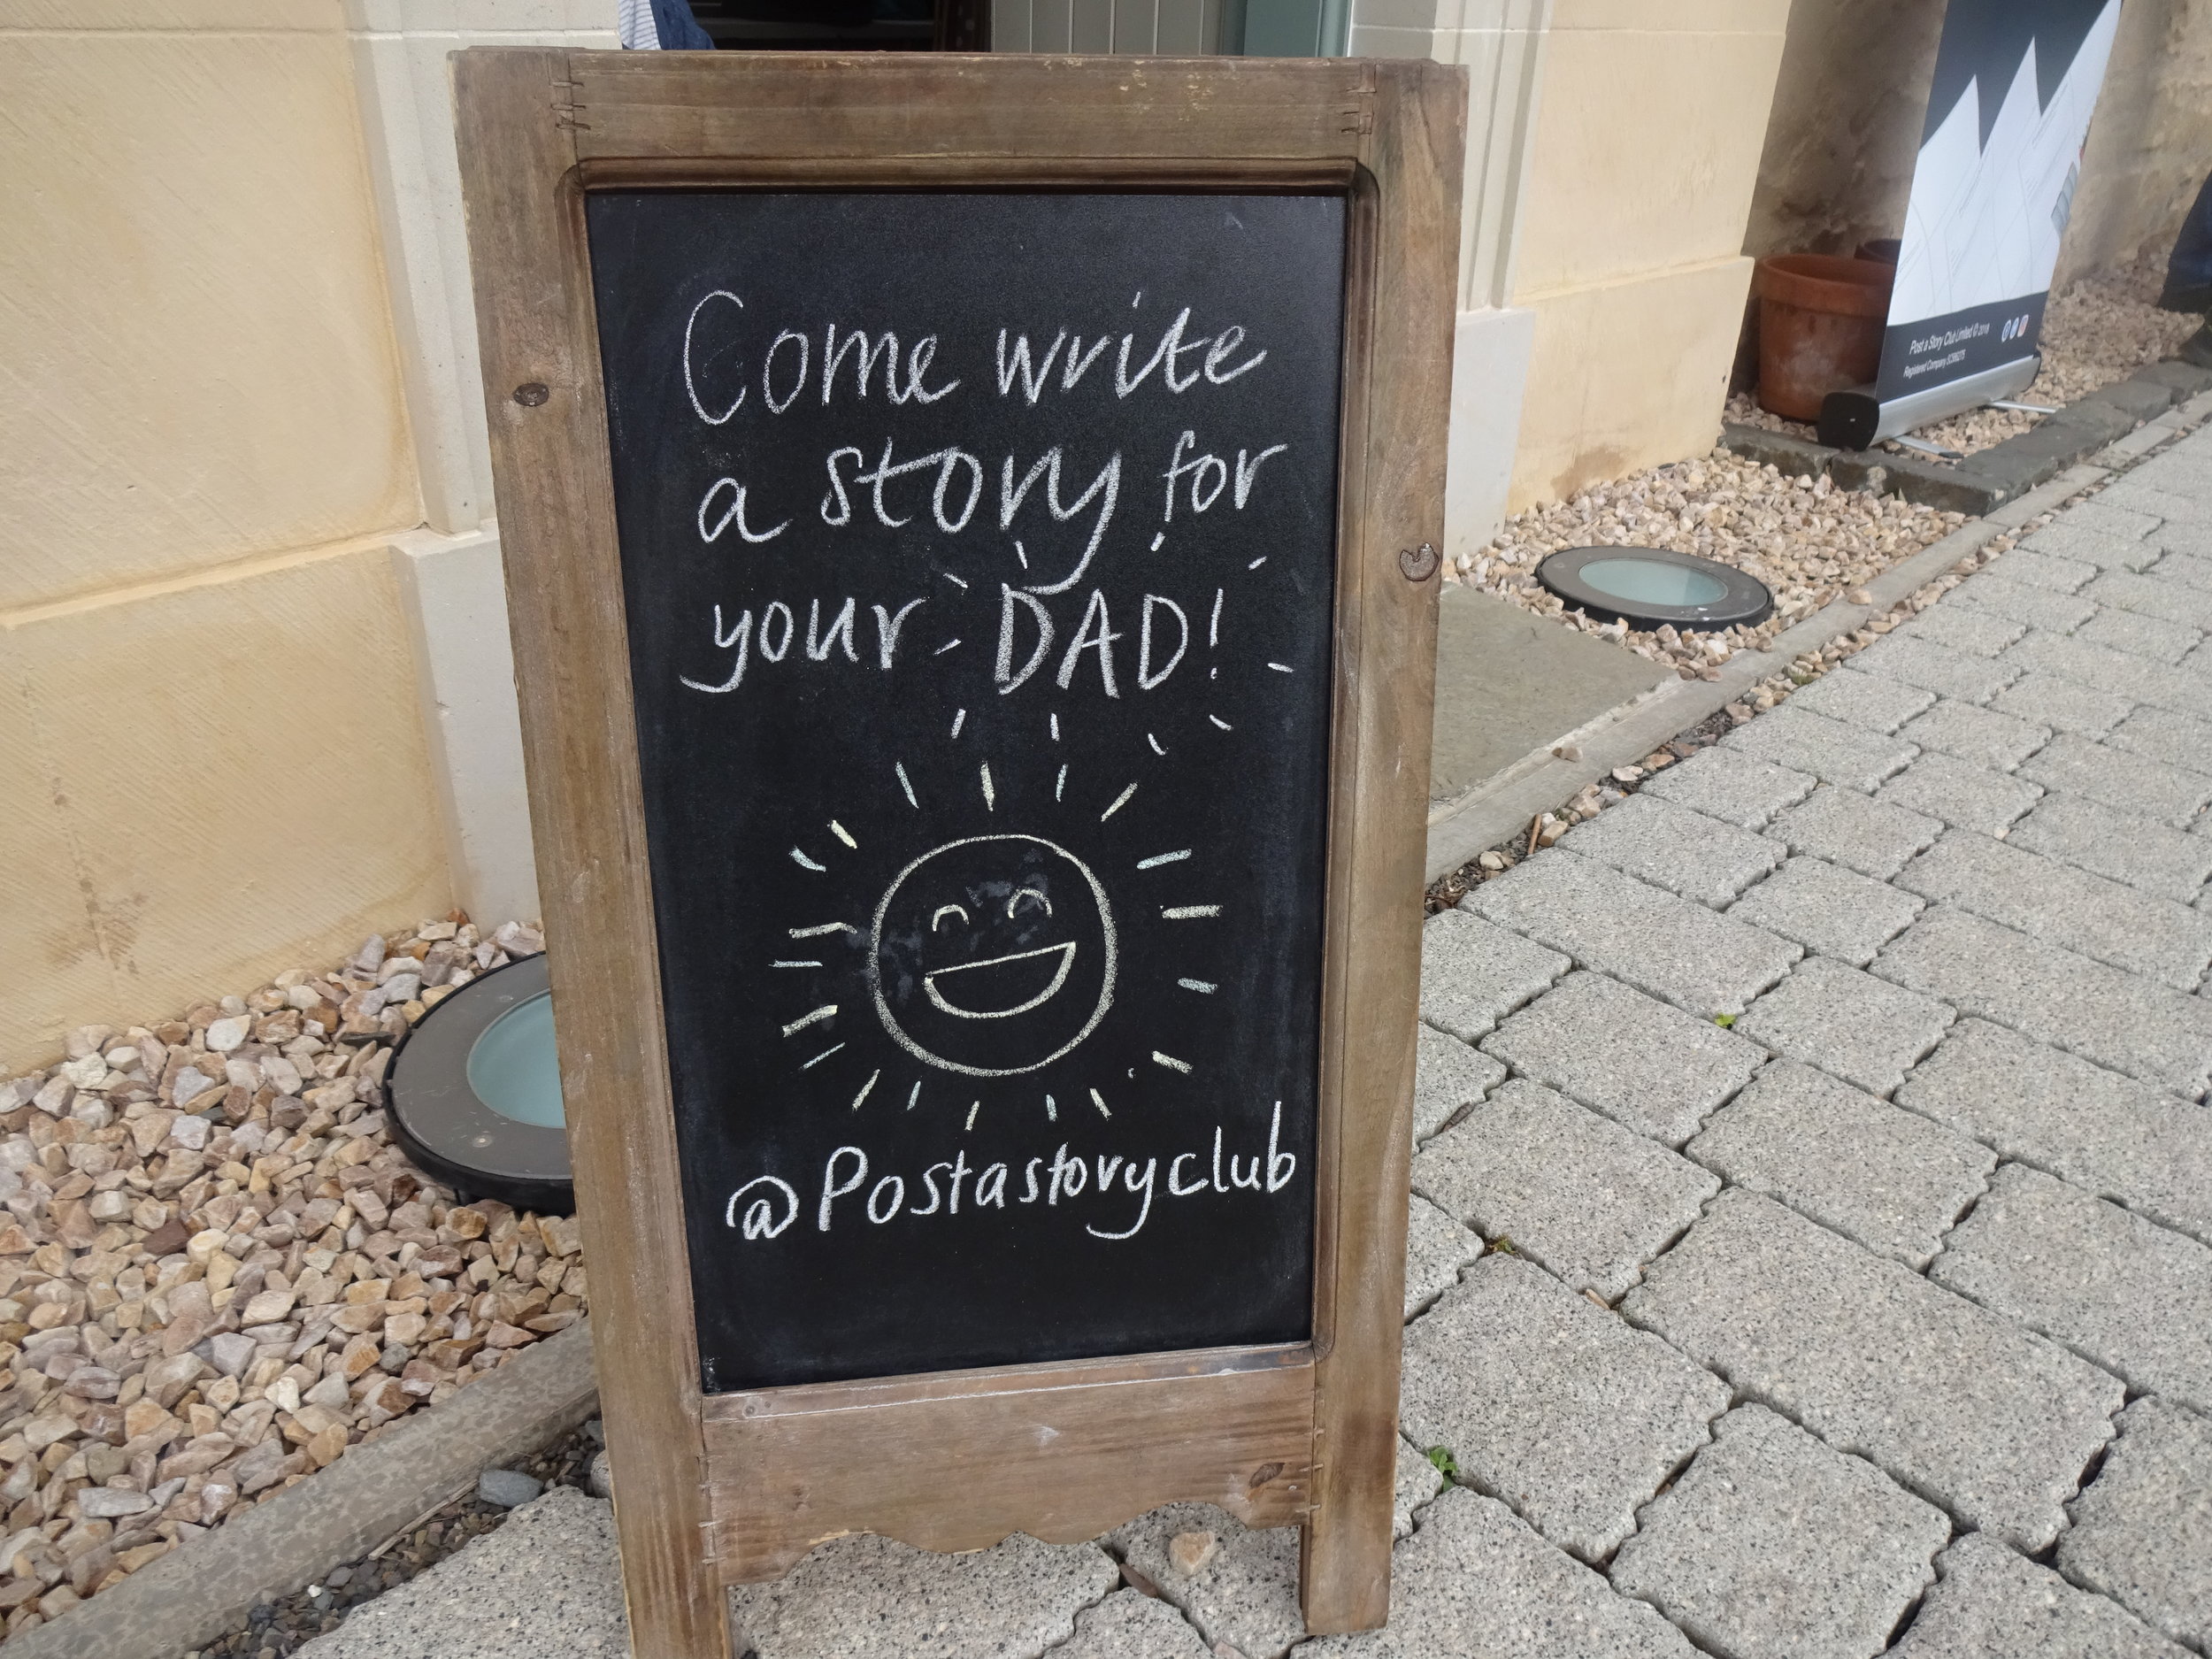 Come write
a story for
your DAD!
@Postastoryclub
Post a Story Club Limited © 2018